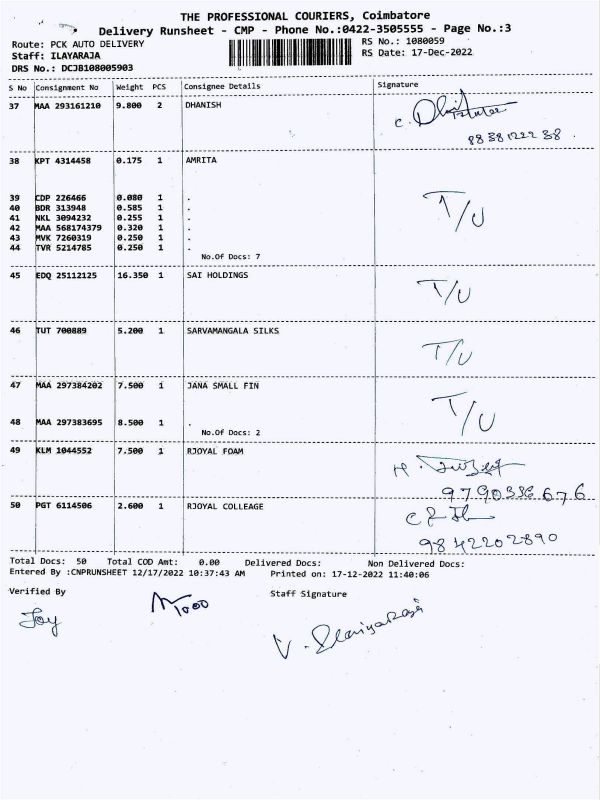 THE PROFESSIONAL COURIERS, Coimbatore
Delivery Runsheet - CMP - Phone No.:0422-3505555 - Page No.:3
Route: PCK AUTO DELIVERY
Staff: ILAYARAJA
DRS No.: DCJB108005903
RS No.: 1080059
RS Date: 17-Dec-2022
S No Consignment No Weight PCS Consignee Details Signature
37 MAA 293161210 9.800 2 DHANISH
8838122238
38 KPT 4314458 0.175 1 AMRITA
39 CDP 226466 0.080 1 .
40 BDR 313948 0.585 1 .
41 NKL 3094232 0.255 1 .
42 MAA 568174379 0.320 1 .
43 MVK 7260319 0.250 1 .
44 TVR 5214785 0.250 1 .
T/U
No.Of Docs: 7
45 EDQ 25112125 16.350 1 SAI HOLDINGS
T/U
46 TUT 700889 5.200 1 SARVAMANGALA SILKS
T/U
47 MAA 297384202 7.500 1 JANA SMALL FIN
T/U
48 MAA 297383695 8.500 1 .
No.Of Docs: 2
49 KLM 1044552 7.500 1 RJOYAL FOAM
9790336676
50 PGT 6114506 2.600 1 RJOYAL COLLEAGE
9842202890
Total Docs: 50 Total COD Amt: 0.00 Delivered Docs: Non Delivered Docs:
Entered By :CNPRUNSHEET 12/17/2022 10:37:43 AM Printed on: 17-12-2022 11:40:06
Verified By
Staff Signature
Joy
V. Ilaiyaraja